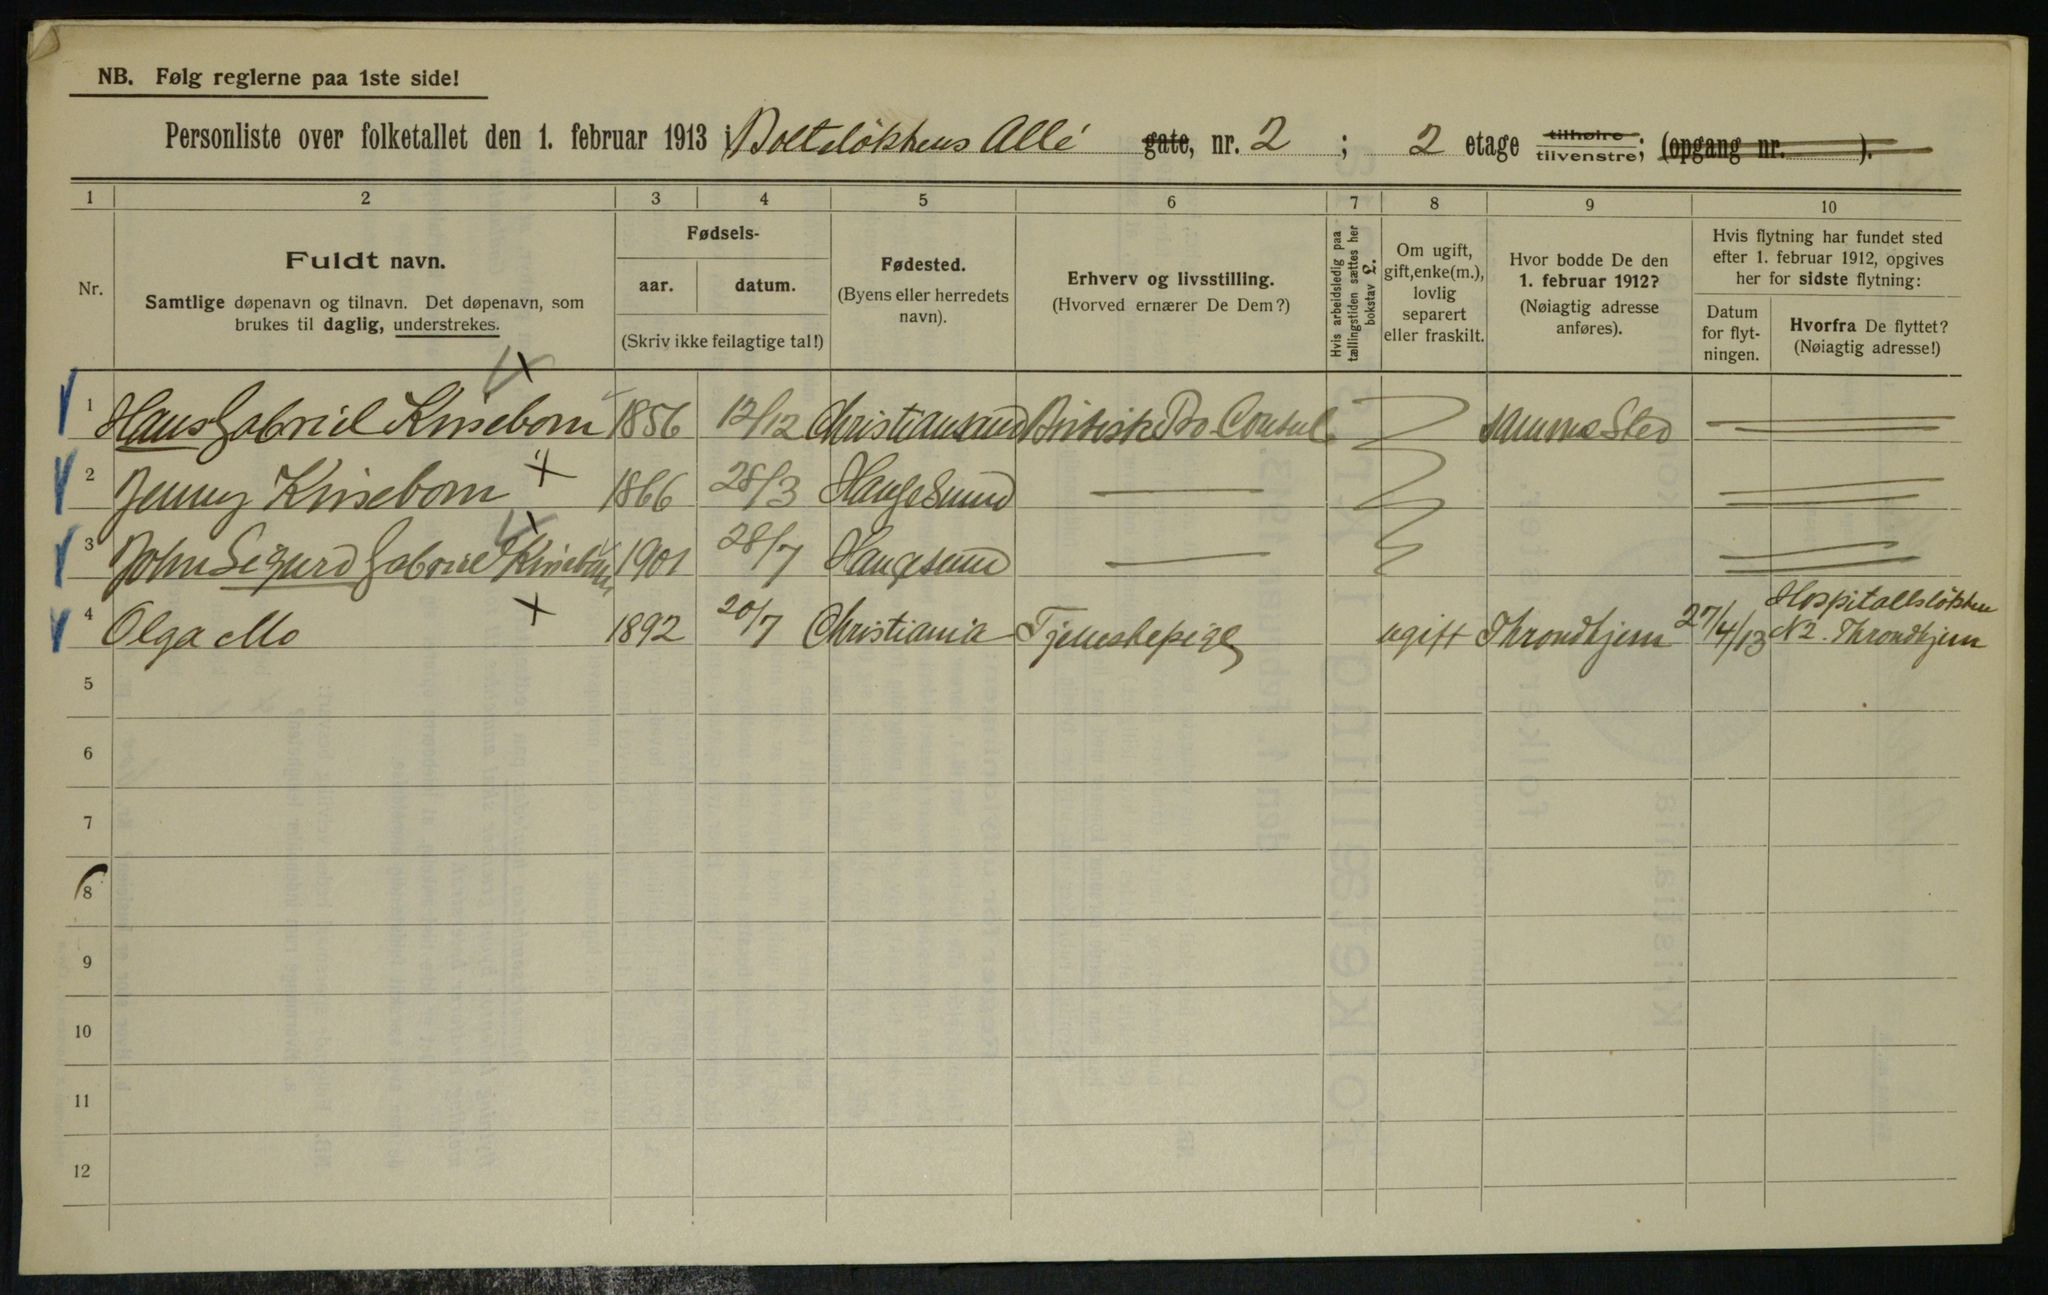 NB. Følg reglerne paa 1ste side!
Personliste over folketallet den 1. februar 1913 i Boltsløkkens Allé gate, nr. 2 ; 2 etage tilhøire tilvenstre; (opgang nr. ).
1 2 3 4 5 6 7 8 9 10
Nr.
Fuldt navn.
Samtlige døpenavn og tilnavn. Det døpenavn, som
brukes til daglig, understrekes.
Fødsels-
aar. datum.
(Skriv ikke feilagtige tal!)
Fødested.
(Byens eller herredets
navn).
Erhverv og livsstilling.
(Hvorved ernærer De Dem?)
Hvis arbeidsledig paa
tællingstiden sættes her
bokstav L.
Om ugift,
gift, enke(m.),
lovlig
separert
eller fraskilt.
Hvor bodde De den
1. februar 1912?
(Nøiagtig adresse
anføres).
Hvis flytning har fundet sted
efter 1. februar 1912, opgives
her for sidste flytning:
Datum
for flyt-
ningen.
Hvorfra De flyttet?
(Nøiagtig adresse!)
1 Hans Gabriel Kirsebom 1856 12/12 Christiansund Britisk Pro Consul samme Sted
2 Jenny Kirsebom 1866 28/3 Haugesund
3 John Sigurd Gabriel Kirsebom 1901 28/7 Haugesund
4 Olga Mo 1892 20/7 Christiania Tjenestepige ugift Throndhjem 27/4/13 Hospitalsløkken
N2. Throndhjem
5
6
7
8
9
10
11
12